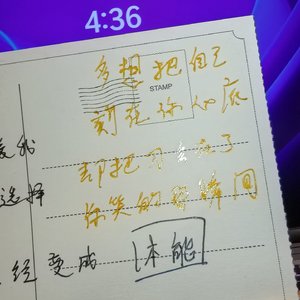 4:36
多想把自己
STAMP
刻在你心底
爱我
却把 了
选择
你笑的那瞬间
经变成 本能